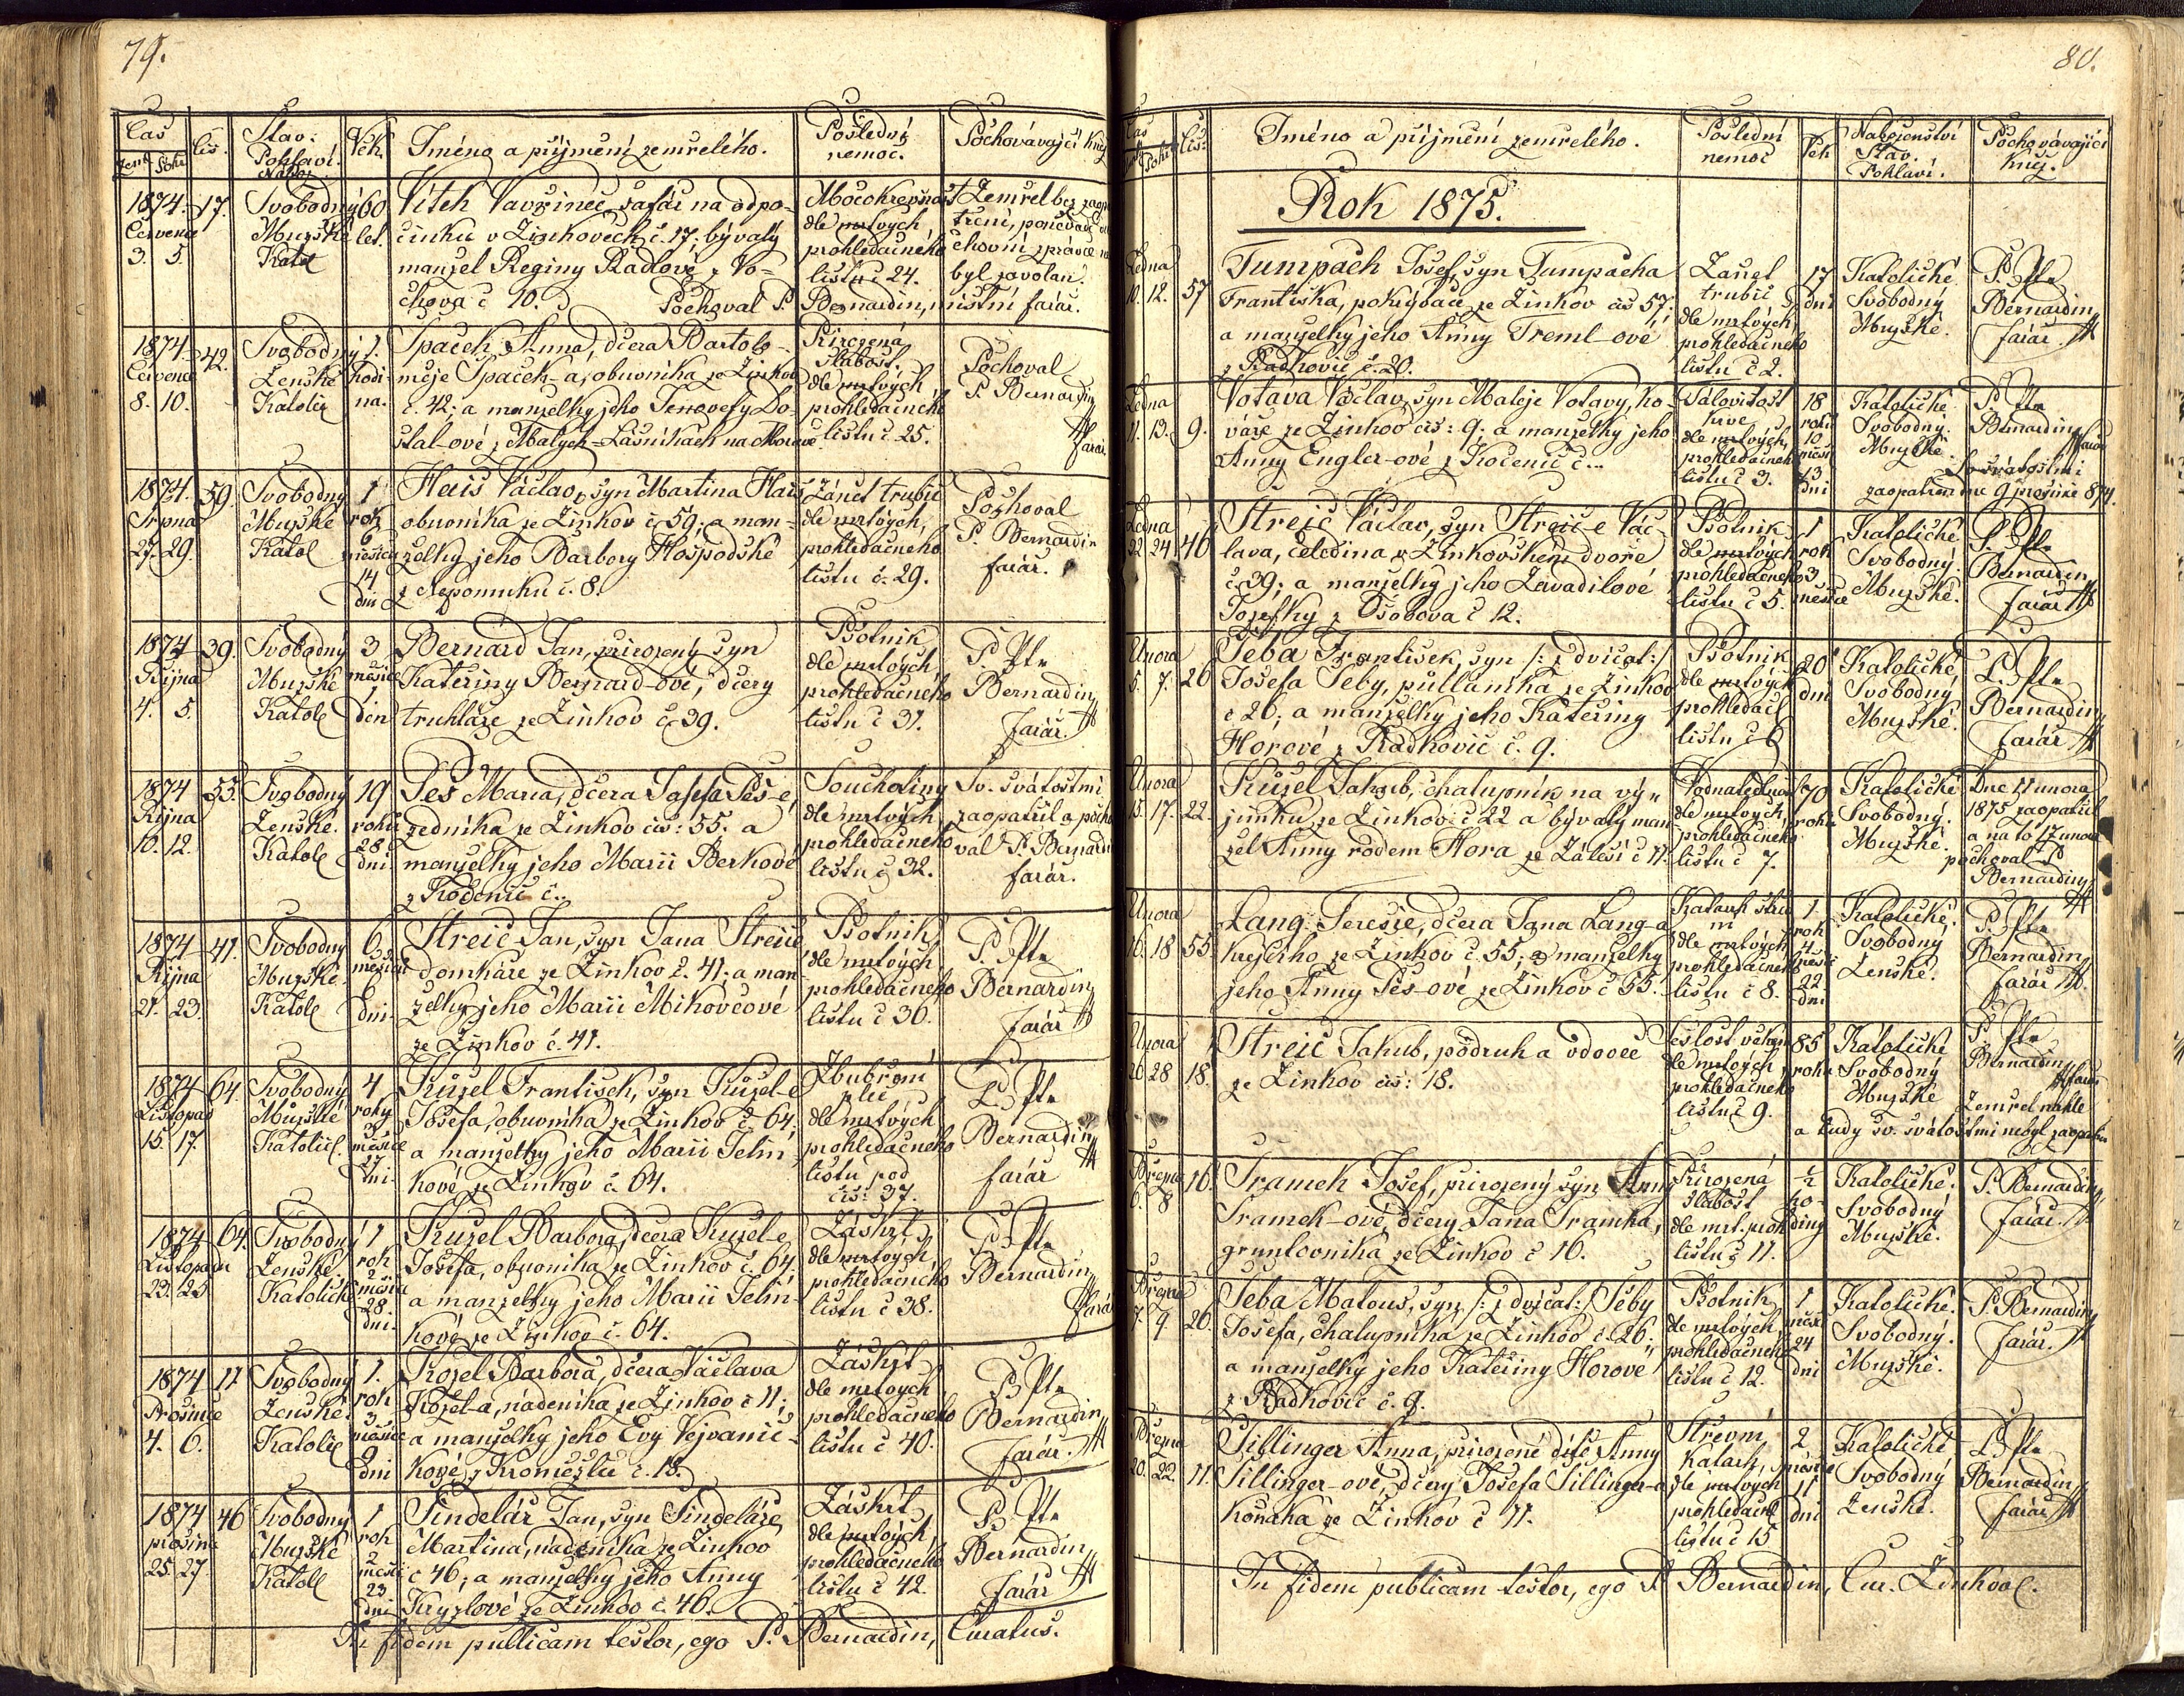 79.
Čas
Zemř. Pohř.
Čis.
Stav.
Pohlaví.
Nábož.
Věk
Jméno a příjmení zemřelého.
Poslední
nemoc.
Pochovávající kněz
1874.
Července
3. 5.
17.
Svobodný
Mužské
Katol
60
let.
Vítek Vavřinec, šafář na odpo-
činku v Žinkovech č. 17; bývalý
manžel Reginy Radlové z Vo-
chova č 10.
Pochoval P. Bernardin, místní farář.
dle mrtvých
prohledacného
lístku č 24.
Zemřel bez
byl zavolan.
1874.
Července
8. 10.
42.
Svobodný
Ženské
Katolic
1.
hodi-
na.
Špaček Anna, dčera Bartolo-
měje Špaček-a, obuvníka ze Žinkov
č. 42; a manželky jeho Jenovefy Do-
stal-ové z Malých-Lašnikách na Moravě
Přirozená
slabost,
dle mrtvých
prohledačného
lístu č. 25.
Pochoval
P. Bernardin
farář.
1874.
Srpna
27. 29.
59.
Svobodný
Mužské
Katol
1
rok
6
měsíců
14
dní
Hais Václav, syn Martina Hais
obuvníka ze Žinkov č. 59; a man-
želky jeho Barbory Hospodské
z Nepomuku č. 8.
Zánět trubic
dle mrtvých,
prohledačného
lístu č. 29.
Pochoval
P. Bernardin
farář.
1874
Října
4. 5.
39.
Svobodný
Mužské
Katol
3
měsíce
1
den
Bernard Jan, přirozený syn
Kateřiny Bernard-ové, dčery
truhláře ze Žinkov č. 39.
Psotník
dle mrtvých
prohledačného
lístu č 31.
P. Ptr
Bernardin
farář.
1874
Října
10. 12.
55.
Svobodný
Ženské.
Katol
19
roků
28
dní
Peš Maria, dčera Josefa Peš-e,
zedníka ze Žinkov čis: 55. a
manželky jeho Marii Berkové
z Kočenic č..
Souchotiny
dle mrtvých
prohledačného
lístu č 32.
Sv. svátostmi
zaopatřil a pocho
val P. Bernardin
farář.
1874
Října
21. 23.
41.
Svobodný
Mužské
Katol
6
měsíců
dní
Streič Jan, syn Jana Streiče
domkáře ze Žinkov č. 41; a man
želky jeho Marii Mikovčové
ze Žinkov č. 41.
Psotník
dle mrtvých
prohledačného
lístu č 36.
P. Ptr
Bernardin
farář
1874
Listopad
15. 17.
64.
Svobodný
Mužské
Katolic
4
roky
měsíce
27
dní
Kužel František, syn Kužel-e
Josefa, obuvníka ze Žinkov č 64,
a manželky jeho Marii Jelín-
kové ze Žinkov č. 64.
Zbubření
plic
dle mrtvých
prohledačného
lístu pod
čis: 37.
P. Ptr
Bernardin
farář
1874
Listopadu
23. 25
64.
Svobodný
Ženské
Katolick
1
rok
2
měsíce
28.
dní.
Kužel Barbora, dčera Kužel-e
Josefa, obuvníka ze Žinkov č. 64.
a manželky jeho Marii Jelín-
kové ze Žinkov č. 64.
Záškrt
dle mrtvých,
prohledačného
lístu č 38.
P. Ptr
Bernardin
farář
1874
Prosince
4. 6.
11
Svobodný
Ženské
Katolic
1.
rok
3
měsíce
9
dní
Kozel Barbora, dčera Václava
Kozel-a, nádeníka ze Žinkov č 11;
a manželky jeho Evy Vejvanič-
kové, z Kroměžlic č. 18.
Záškrt
dle mrtvých
prohledačného
lístu č 40.
P. Ptr
Bernardin
farář.
1874
prosince
25. 27.
46
Svobodný
Mužské
Katol
1
rok
2
měsíce
23
dní
Šindelář Jan, syn Šindeláře
Martina, nádeníka ze Žinkov
č 46; a manželky jeho Anny
Kryzlové ze Žinkov č. 46.
Záškrt
dle mrtvých
prohledačného
lístu č 42.
P. Ptr
Bernardin
farář
In fidem publicam testor, ego P. Bernardin, Curatus.
80.
Čas
Pohř.
Čis.
Jméno a příjmení zemřelého.
Poslední
nemoc
Věk
Náboženství
Stav.
Pohlaví.
Pochovávající
kněz.
Rok 1875.
Ledna
10. 12.
57
Tumpach Josef, syn Tumpacha
Františka, pokrývače ze Žinkov čis 57;
a manželky jeho Anny Treml-ové
z Radkovic č. 20.
Zánět
trubic
dle mrtvých
prohledačného
lístu č 2.
17
dní
Katolické
Svobodný
Mužské.
P. Ptr
Bernardin
farář.
Ledna
11. 13.
9.
Votava Václav, syn Matěje Votavy, ko-
váře ze Žinkov čis: 9. a manželky jeho
Anny Engler-ové z Kočenic č...
Jalovitost
krve
dle mrtvých,
prohledačného
lístu č 3.
18
roků
10
měsíců
13
dní
Katolické
Svobodný.
Mužské.
P. Ptr
Bernardin
farář
Sv. svátostmi
zaopatřen dne 9 prosince 874.
Ledna
22 24
46
Streič Václav, syn Streič-e Vác-
lava, čeledína ze Žinkovského dvoře
č. 39; a manželky jeho Zavadilové
Josefky z Osobova č 12.
Psotník
dle mrtvých
prohledačného
lístu č 5.
1
rok
3
měsíce
Katolické
Svobodný.
Mužské.
P. Ptr
Bernardin
farář
Února
5. 7.
26
Šeba František, syn /: z dvojčat:/
Josefa Šeby, půlláníka ze Žinkov
č 26; a manželky jeho Kateřiny
Hórové z Radkovic č. 9.
Psotník
dle mrtvých
prohledač
lístu č 6
20
dní
Katolické
Svobodný
Mužské.
P. Ptr
Bernardin
farář
Února
15. 17.
22.
Kužel Jakub, chalupník na vý-
jimku ze Žinkov č 22 a bývalý man
žel Anny rodem Hora ze Zálesí č 11.
dle mrtvých
prohledačného
lístu č 7.
70
roků
Katolické
Svobodný.
Mužské.
Dne 11 února
1875 zaopatřil
a na to 17 února
pochoval P
Bernardin
Února
16. 18
55
Lang Terezie, dčera Jana Lang-a
krejčího ze Žinkov č. 55; a manželky
jeho Anny Peš-ové ze Žinkov č 55.
dle mrtvých
prohledačného
lístu č 8.
1
rok
4
měsíce
22
dní
Katolické,
Svobodný
Ženské.
P. Ptr
Bernardin
farář
Února
26 28
18.
Streič Jakub, podruh a vdovec
ze Žinkov čis: 18.
Sešlost věkem
dle mrtvých
prohledačného
lístu č 9.
85
roků
Katolické
Svobodný
Mužské
P. Ptr
Bernardin
farář
Zemřel náhle
a tudy sv. svátostmi nebyl zaopatřen
Března
6. 8
16.
Šramek Josef, přirozený syn Anny
Šramek-ové, dčery Jana Šramka,
gruntovníka ze Žinkov č 16.
Přirozená
slabost
dle mrt. proh
lístu č 11.
½
ho-
diny
Katolické.
Svobodný
Mužské.
P. Bernardin,
farář.
Března
7. 9
26.
Šeba Matouš, syn /: z dvojčat:/ Šeby
Josefa, chalupníka ze Žinkov č. 26.
a manželky jeho Kateřiny Horové
z Radkovic č. 9.
Psotník
dle mrtvých
prohledačného
lístu č 12.
1
měsíc
24
dní
Katolické.
Svobodný.
Mužské.
P. Bernardin,
farář.
Března
20. 22.
11.
Sillinger Anna, přirozené dítě Anny
Sillinger-ové, dčery Josefa Sillinger-a
koňáka ze Žinkov č 11.
Střevní
Katarh,
dle mrtvých
prohledačné
lístu č 15
2
měsíce
11
dní
Katolické
Svobodný
Ženské.
P. Ptr
Bernardin
farář
In fidem publicam testor, ego P Bernardin, Cur. Žinkov.